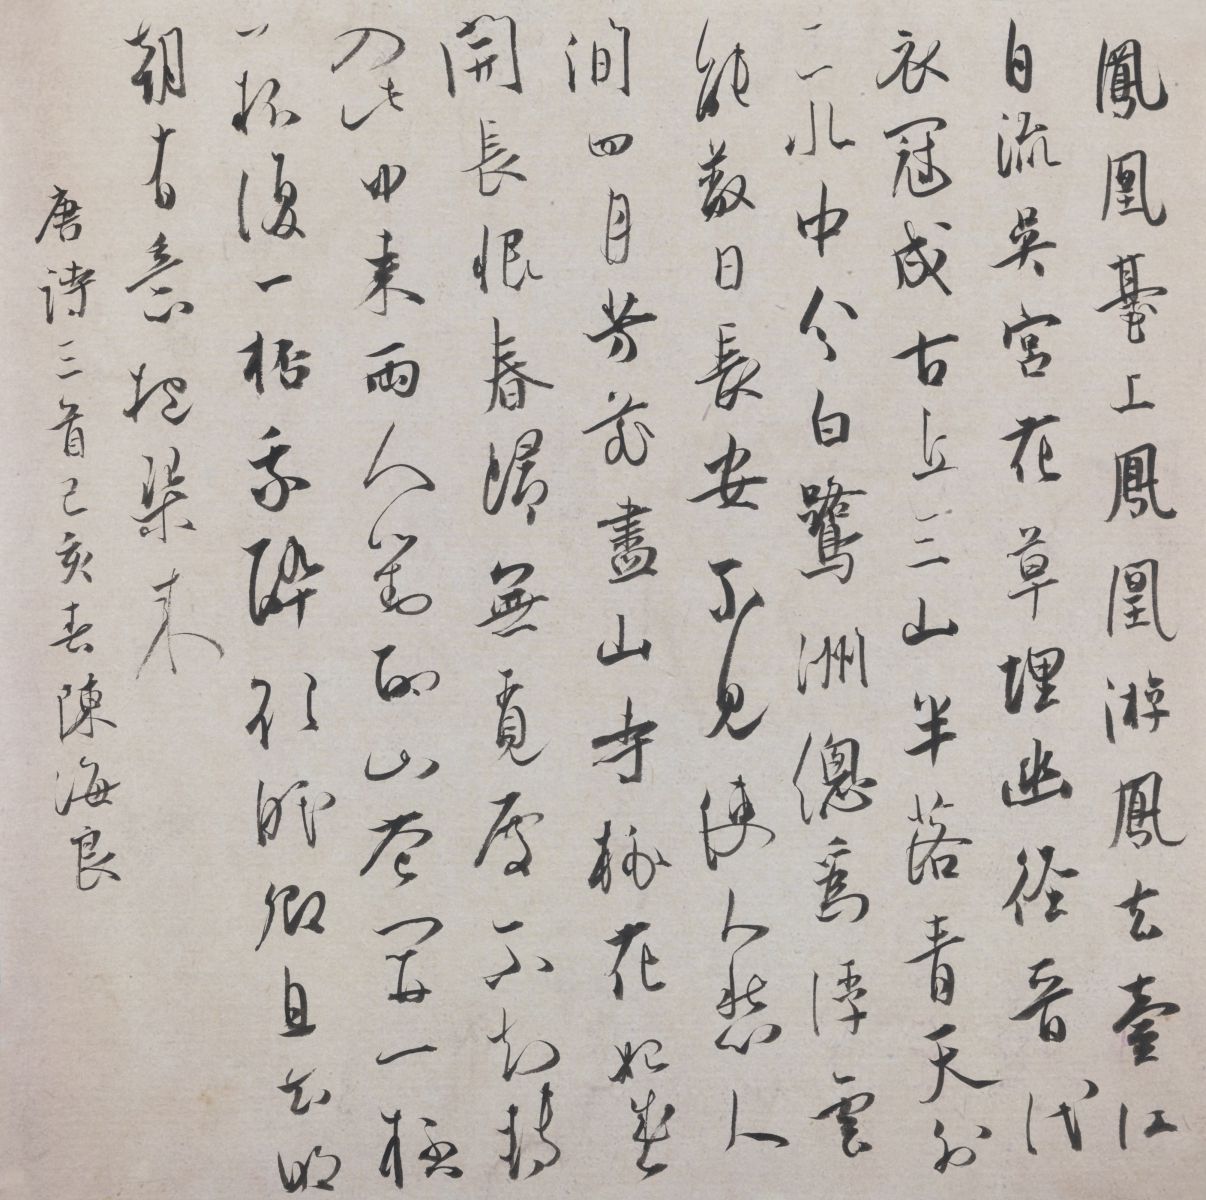 鳳凰臺上鳳凰游鳳去臺江
自流吳宮花草埋幽徑晉代
衣冠成古丘三山半落青天外
二水中分白鷺洲總為浮雲
能蔽日長安不見使人愁人
間四月芳菲盡山寺桃花始盛
開長恨春歸無覓處不知轉
入此中來兩人對酌山花開一杯
一杯復一杯我醉欲眠卿且去明
朝有意抱琹来
唐詩三首己亥春陳海良